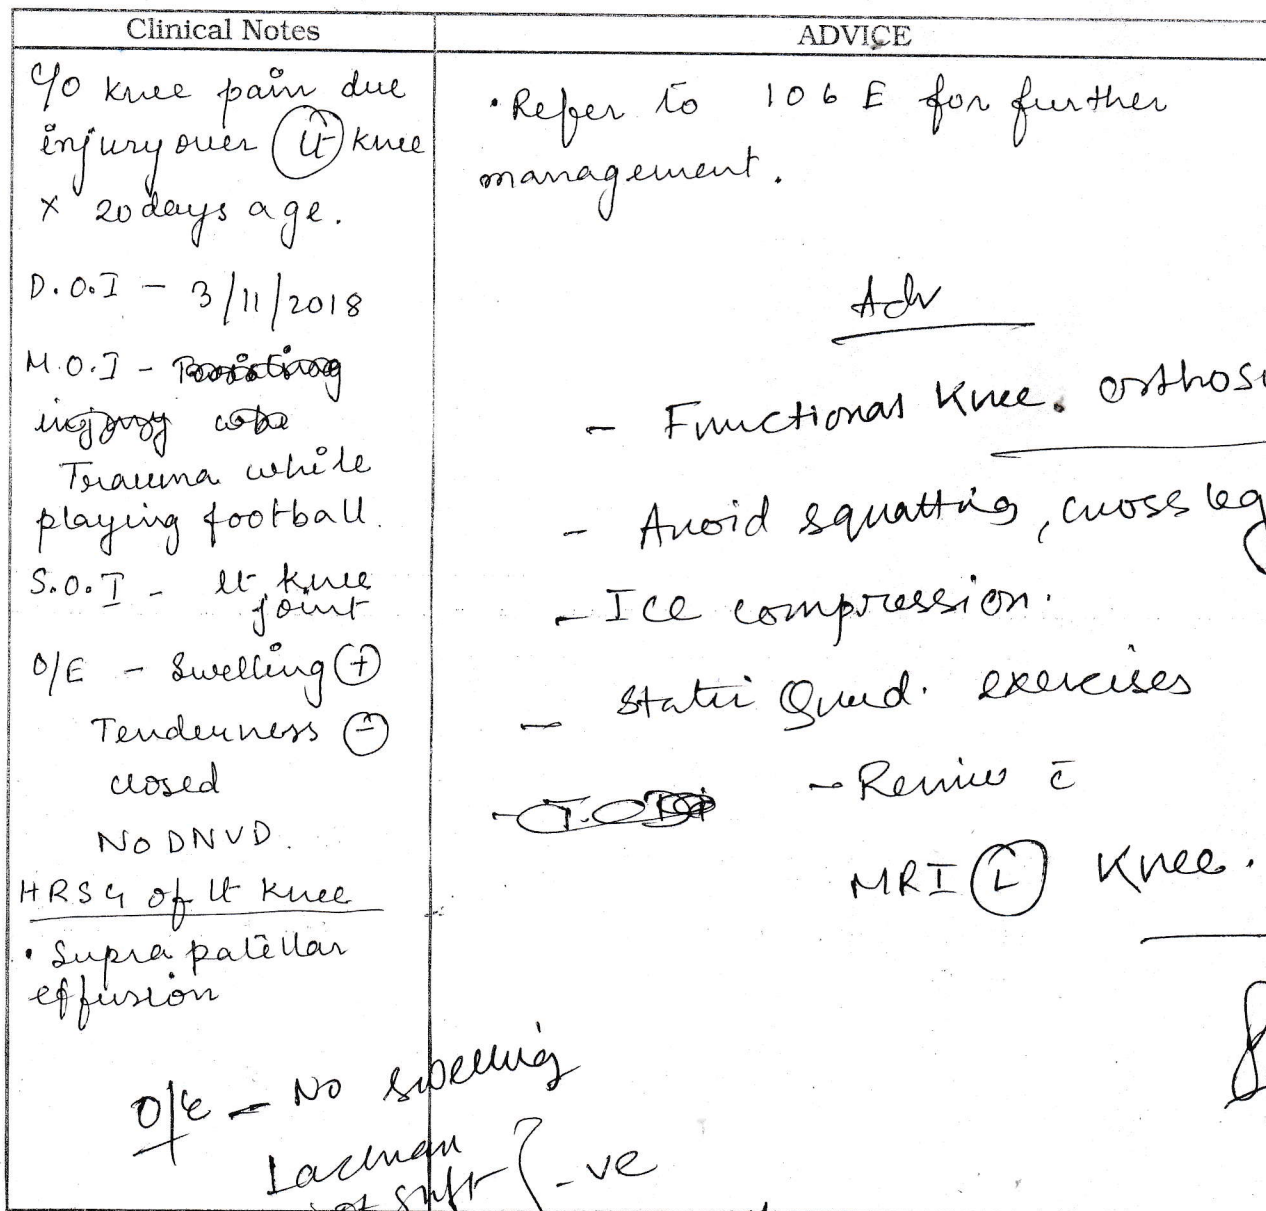 Clinical Notes
ADVICE
C/O knee pain due
injury over Lt knee
x 20 days age.
D.O.I - 3/11/2018
M.O.I -
injury
Trauma while
playing football.
S.O.I - Lt knee
joint
O/E - Swelling +
Tenderness -
closed
No DNVD.
HRSG of Lt knee
• Supra patellar
effusion
O/E - No swelling
Lachman
-ve
• Refer to 106 E for further
management.
Adv
- Functional Knee. orthosi
- Avoid squatting, cross leg
- Ice compression.
- Static Quad. exercises
- Review c̄
MRI L Knee.